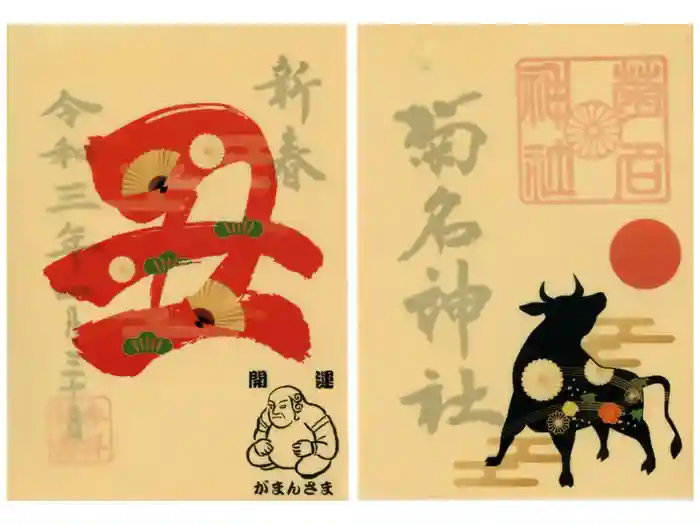 新春
丑
令和三年四月三十日
開運
がまんさま
菊名神社
菊名
神社